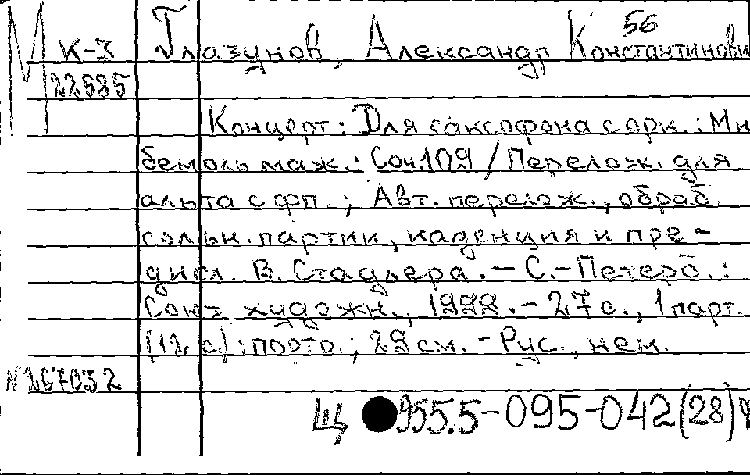 56
М К-3 Глазунов, Александр Константинови
22595
Концерт: Для саксофона с орк.: Ми
бемоль маж.: Соч.109 / Перелож. для
альта с фп.; Авт. перелож., обраб.
сольн. партии, каденция и пре-
дисл. В. Стадлера. - С.-Петерб.:
Союз художн., 1999. - 27 с., 1 парт.
(12 с.): портр.; 29 см. - Рус., нем.
N 267032
Щ 955.5-095-042(28)